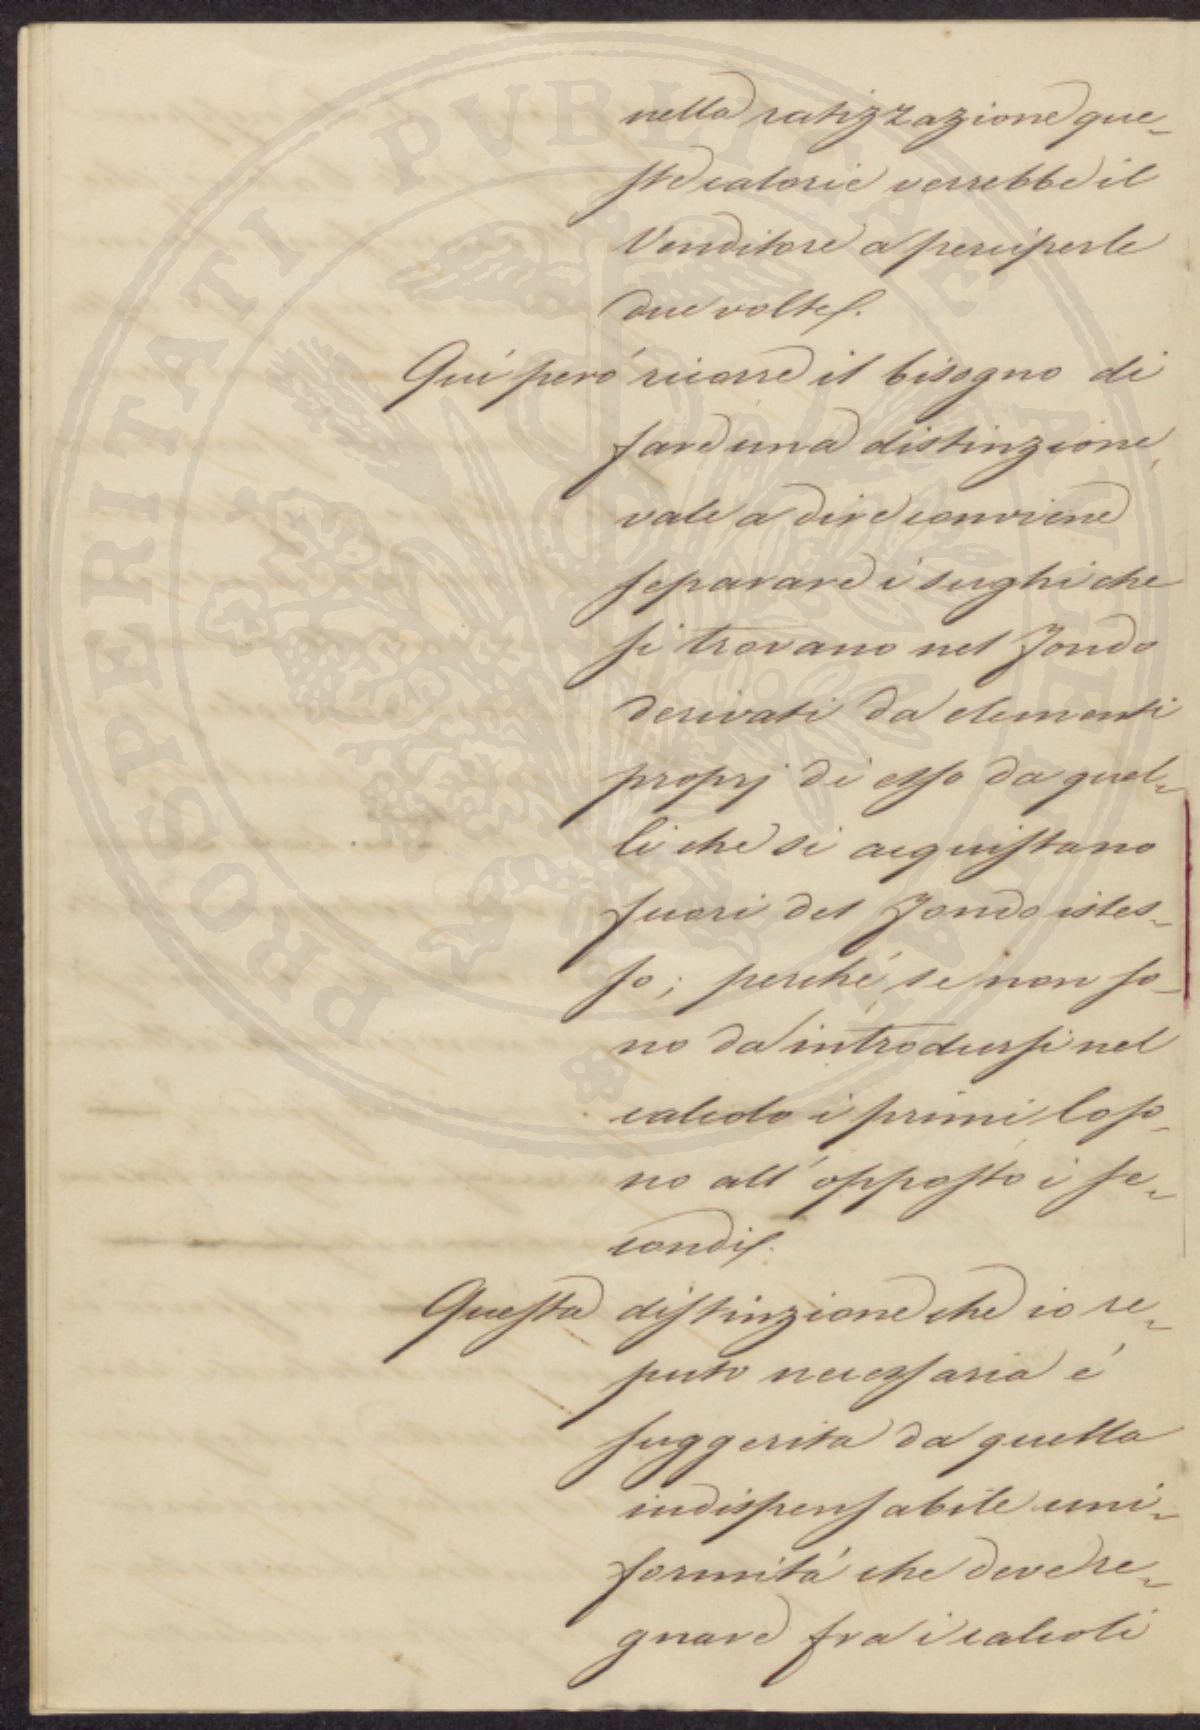 nella ratizzazione que-
ste calorie verrebbe il
Venditore a perciperle
due volte.
Quì però ricorre il bisogno di
fare una distinzione,
vale a dire conviene
separare i sughi che
si trovano nel Fondo
derivati da elementi
proprj di esso da quel-
li che si acquistano
fuori del Fondo istes-
so; perché se non so-
no da introdursi nel
calcolo i primi lo so-
no all'opposto i se-
condi.
Questa distinzione che io re-
puto necessaria é
suggerita da quella
indispensabile uni-
formitá che deve re-
gnare fra i calcoli
PROSPERITATI PUBLICAE AUGENDAE